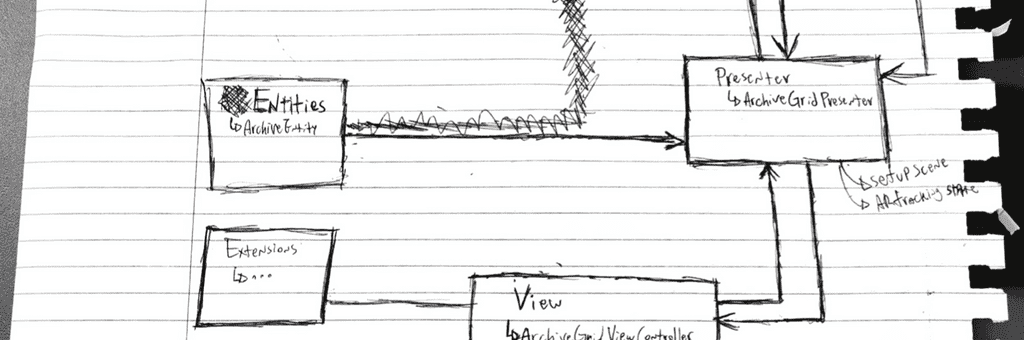 Entities
↳ ArchiveEntity
Presenter
↳ ArchiveGridPresenter
setup scene
AR tracking state
Extensions
↳ ...
View
↳ ArchiveGridViewController